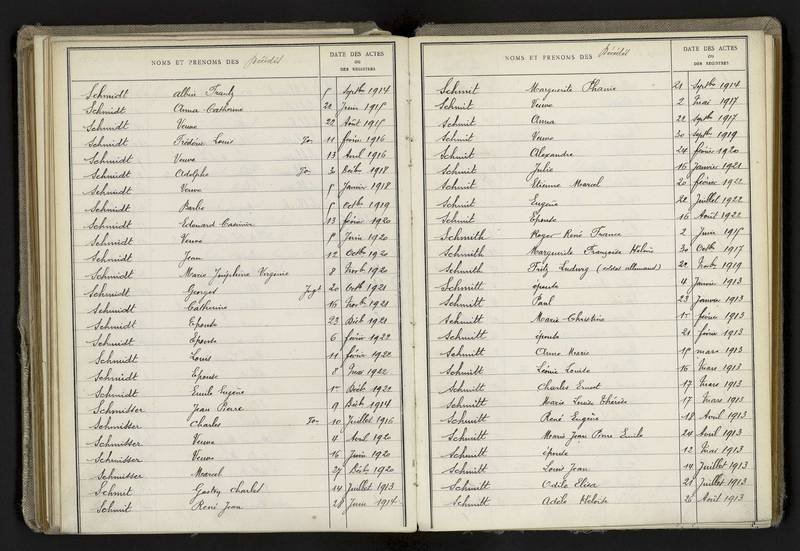 NOMS ET PRENOMS DES Décédés
DATE DES ACTES
OU
DES REGISTRES
Schmidt Albin Frantz 5 Septbre 1914
Schmidt Anna Catherine 22 Juin 1915
Schmidt Veuve 22 Août 1915
Schmidt Frédéric Louis 11 février 1916
Schmidt Veuve 13 Avril 1916
Schmidt Adolphe 1918
Schmidt Veuve 5 Janvier 1918
Schmidt 5 Octbre 1919
Schmidt Edouard Casimir 13 février 1920
Schmidt Veuve 5 Juin 1920
Schmidt Jean 12 Octbre 1920
Schmidt Marie Joséphine Virginie 8 Novbre 1920
Schmidt Georges 20 Octbre 1921
Schmidt Catherine 16 Novbre 1921
Schmidt Epouse 23 Décbre 1921
Schmidt Epouse 6 février 1922
Schmidt Louis 11 février 1922
Schmidt Epouse 8 Mai 1922
Schmidt Emile Eugène Décbre 1922
Schmisser Jean Pierre 9 Décbre 1914
Schmisser Charles 10 Juillet 1916
Schmisser Veuve 4 Avril 1920
Schmisser Veuve 16 Juin 1920
Schmisser Marcel 27 Décbre 1920
Schmit Charles 14 Juillet 1913
Schmit René Jean 28 Juin 1914
NOMS ET PRENOMS DES Décédés
DATE DES ACTES
OU
DES REGISTRES
Schmit Marguerite 21 Septbre 1914
Schmit Veuve 2 Mai 1917
Schmit Anna 22 Septbre 1917
Schmit Veuve 30 Septbre 1919
Schmit Alexandre 24 février 1920
Schmit Julie 16 Janvier 1921
Schmit Etienne Marcel 20 février 1922
Schmit Eugène 22 Juillet 1922
Schmit Epouse 16 Août 1922
Schmith Roger René France 2 Juin 1915
Schmith Marguerite Françoise Hélène 30 Octbre 1917
Schmith Fritz Ludwig (soldat allemand) 22 Novbre 1919
Schmitt épouse 4 Janvier 1913
Schmitt Paul 23 Janvier 1913
Schmitt Marie Christine février 1913
Schmitt épouse 21 février 1913
Schmitt Anne Marie 15 mars 1913
Schmitt Léonie Louise 16 Mars 1913
Schmitt Charles Ernest 17 Mars 1913
Schmitt Marie Louise Thérèse 17 Mars 1913
Schmitt René Eugène 18 Avril 1913
Schmitt Marie Jean Pierre Emile 24 Avril 1913
Schmitt épouse 12 Mai 1913
Schmitt Louis Jean 14 Juillet 1913
Schmitt Odile Elisa 21 Juillet 1913
Schmitt Adèle Héloïse 26 Août 1913